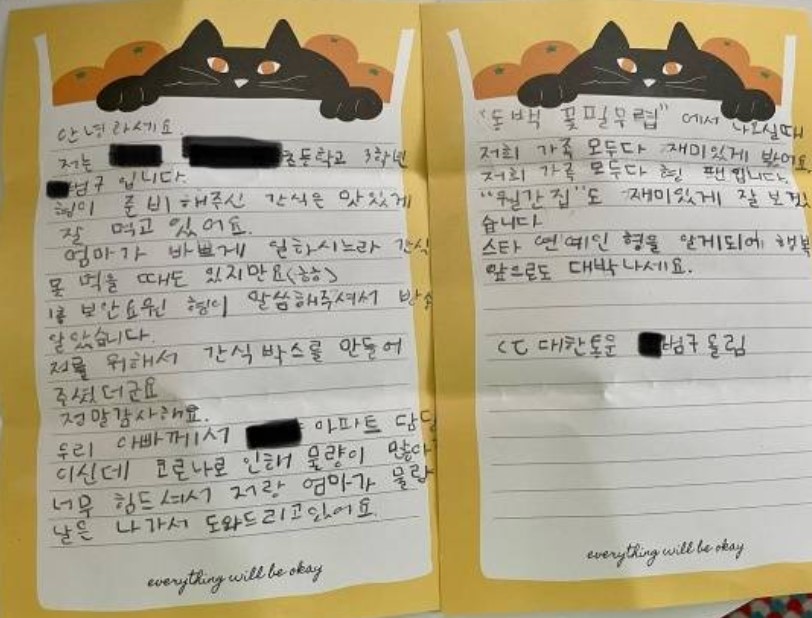 안녕하세요.
저는 초등학교 3학년
범구 입니다.
형이 준비해주신 간식은 맛있게
잘 먹고 있어요.
엄마가 바쁘게 일하시느라 간식
못 먹을 때도 있지만요(ㅎㅎ)
1층 보안요원 형이 말씀해주셔서
알았습니다.
저를 위해서 간식박스를 만들어
주셨더군요
정말감사해요.
우리 아빠께서 아파트 담당
이신데 코로나로 인해 물량이 많아
너무 힘드셔서 저랑 엄마가
날은 나가서 도와드리고있어요.
everything will be okay
"동백 꽃필무렵" 에서 나오실때
저희 가족 모두다 재미있게 봤어요.
저희 가족 모두다 형 팬입니다.
"월간집"도 재미있게 잘 보겠
습니다
스타 연예인 형을 알게되어 행복
앞으로도 대박나세요.
CJ 대한통운 범구올림
everything will be okay